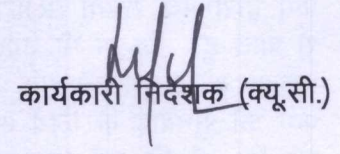 कार्यकारी निदेशक (क्यू.सी.)